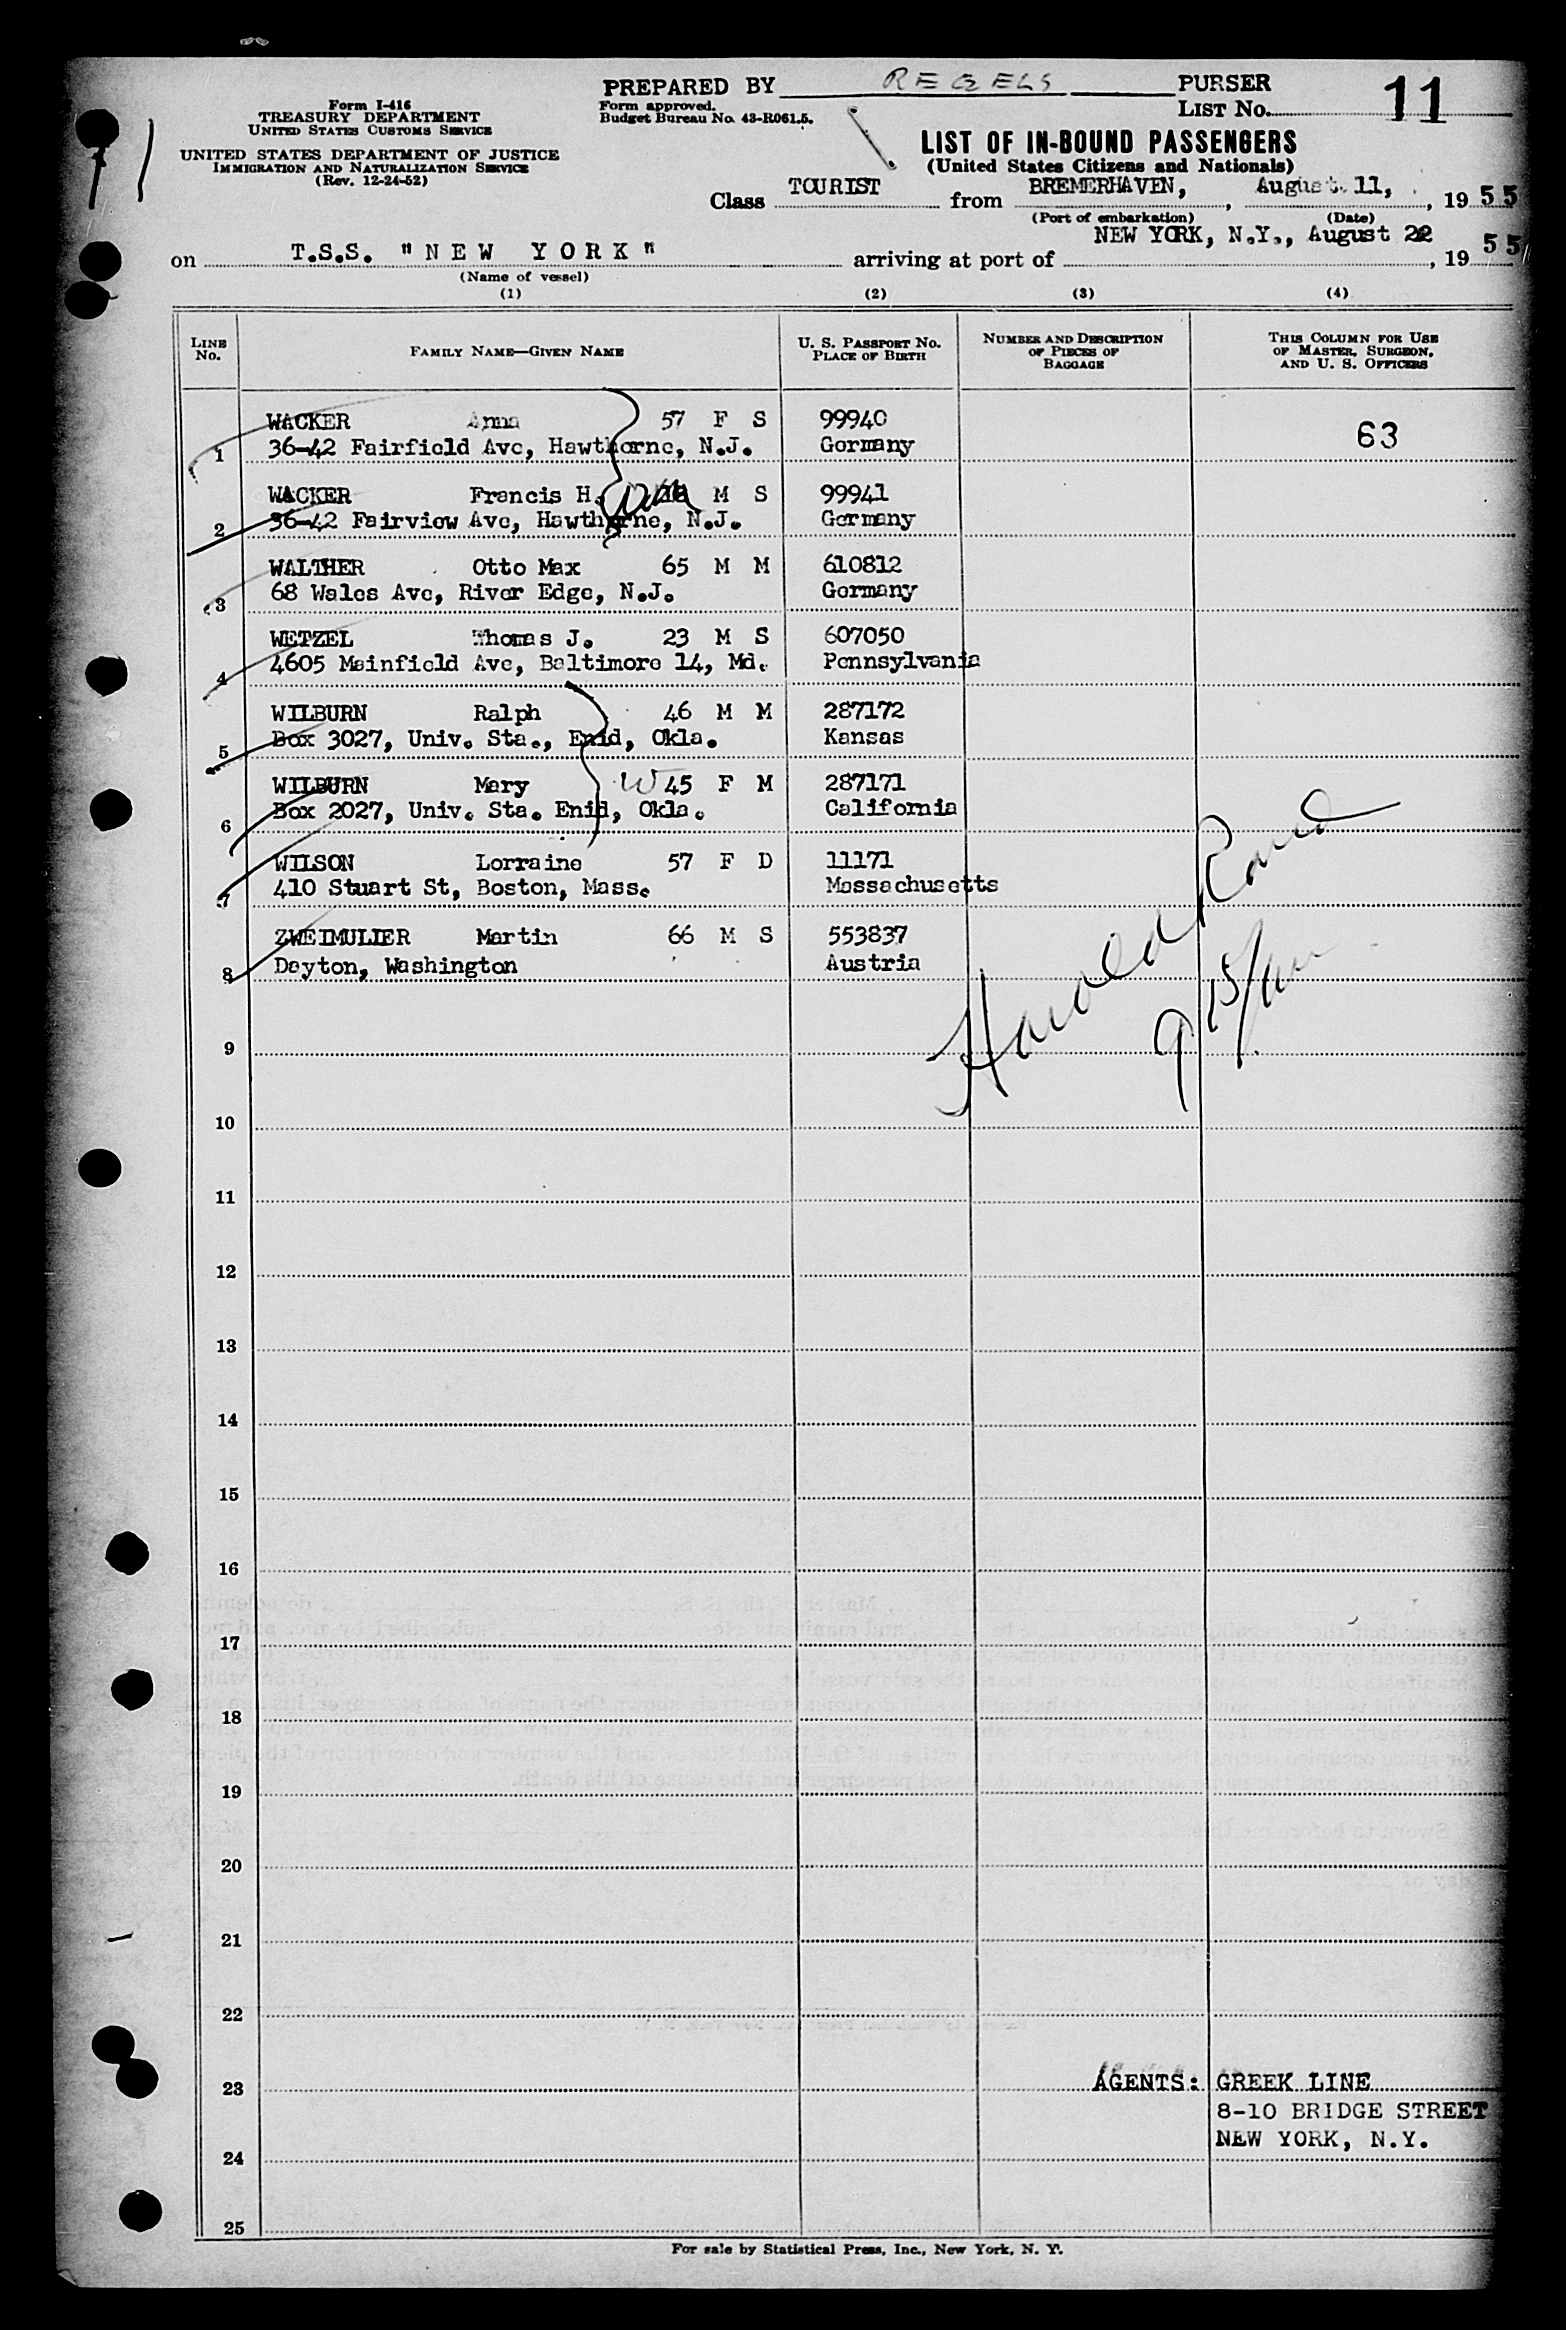 PREPARED BY REGELS PURSER
Form I-416
TREASURY DEPARTMENT
UNITED STATES CUSTOMS SERVICE
UNITED STATES DEPARTMENT OF JUSTICE
IMMIGRATION AND NATURALIZATION SERVICE
(Rev. 12-24-52)
Form approved.
Budget Bureau No. 43-R061.5.
LIST No. 11
LIST OF IN-BOUND PASSENGERS
(United States Citizens and Nationals)
Class TOURIST from BREMERHAVEN, August 11, , 1955
(Port of embarkation) (Date)
on T.S.S. "NEW YORK" arriving at port of NEW YORK, N.Y., August 22, 1955
(Name of vessel)
(1) (2) (3) (4)
LINE No. FAMILY NAME—GIVEN NAME U. S. PASSPORT No. PLACE OF BIRTH NUMBER AND DESCRIPTION OF PIECES OF BAGGAGE THIS COLUMN FOR USE OF MASTER, SURGEON, AND U. S. OFFICERS
WACKER Anna 57 F S 99940 63
1 36-42 Fairfield Ave, Hawthorne, N.J. Germany
WACKER Francis H. M S 99941
2 36-42 Fairview Ave, Hawthorne, N.J. Germany
WALTHER Otto Max 65 M M 610812
3 68 Wales Ave, River Edge, N.J. Germany
WETZEL Thomas J. 23 M S 607050
4 4605 Mainfield Ave, Baltimore 14, Md. Pennsylvania
WILBURN Ralph 46 M M 287172
5 Box 3027, Univ. Sta., Enid, Okla. Kansas
WILBURN Mary W 45 F M 287171
6 Box 2027, Univ. Sta. Enid, Okla. California
WILSON Lorraine 57 F D 11171
7 410 Stuart St, Boston, Mass. Massachusetts
ZWEIMULLER Martin 66 M S 553837
8 Dayton, Washington Austria
Harold Rand
9 15/am
9
10
11
12
13
14
15
16
17
18
19
20
21
22
23 AGENTS: GREEK LINE
8-10 BRIDGE STREET
NEW YORK, N.Y.
24
25
For sale by Statistical Press, Inc., New York, N. Y.